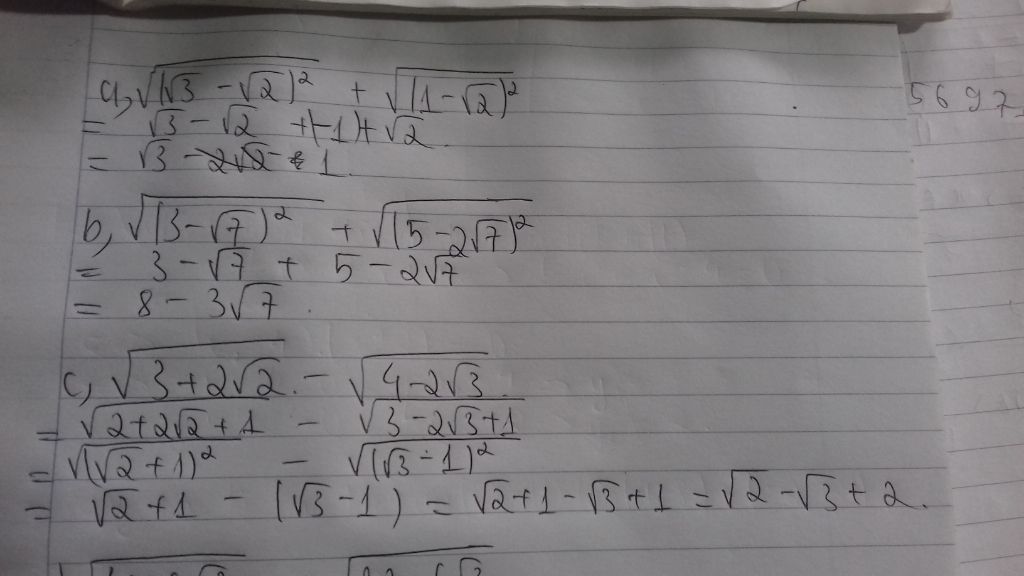 a, √(√3 - √2)² + √(1 - √2)²
= √3 - √2 + (-1) + √2
= √3 - 1
5697
b, √(3 - √7)² + √(5 - 2√7)²
= 3 - √7 + 5 - 2√7
= 8 - 3√7.
c, √3 + 2√2 - √4 - 2√3
= √2 + 2√2 + 1 - √3 - 2√3 + 1
= √(√2 + 1)² - √(√3 - 1)²
= √2 + 1 - (√3 - 1) = √2 + 1 - √3 + 1 = √2 - √3 + 2.